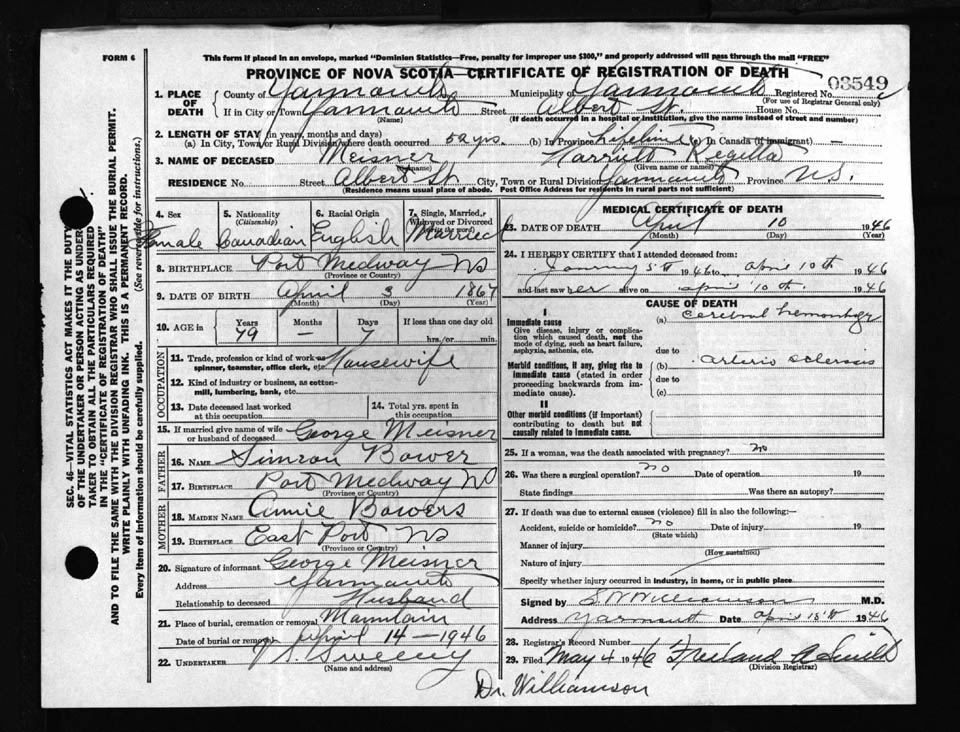 FORM 6
This form if placed in an envelope, marked "Dominion Statistics—Free, penalty for improper use $300," and properly addressed will pass through the mail "FREE"
PROVINCE OF NOVA SCOTIA—CERTIFICATE OF REGISTRATION OF DEATH
03549
1. PLACE OF DEATH County of Yarmouth Municipality of Yarmouth Registered No.
(For use of Registrar General only)
If in City or Town Yarmouth Street Albert St. House No.
(Name) (If death occurred in a hospital or institution, give the name instead of street and number)
2. LENGTH OF STAY (in years, months and days)
(a) In City, Town, or Rural Division where death occurred 52 yrs. (b) In Province Lifetime (c) In Canada (if immigrant) —
3. NAME OF DECEASED Meisner Harriett Regella
(Given name or names)
RESIDENCE No. Street Albert St. City, Town or Rural Division Yarmouth Province N.S.
(Residence means usual place of abode. Post Office Address for residents in rural parts not sufficient)
4. Sex Female
5. Nationality (Citizenship) Canadian
6. Racial Origin English
7. Single, Married, Widowed or Divorced (write the word) Married
8. BIRTHPLACE Port Medway NS
(Province or Country)
9. DATE OF BIRTH April 3 1867
(Month) (Day) (Year)
10. AGE in Years Months Days If less than one day old
79 — 7 hrs./or min.
OCCUPATION
11. Trade, profession or kind of work as spinner, teamster, office clerk, etc. Housewife
12. Kind of industry or business, as cotton-mill, lumbering, bank, etc.
13. Date deceased last worked at this occupation
14. Total yrs. spent in this occupation
15. If married give name of wife or husband of deceased George Meisner
FATHER
16. NAME Simeon Bower
17. BIRTHPLACE Port Medway NS
(Province or Country)
MOTHER
18. MAIDEN NAME Annie Bowers
19. BIRTHPLACE East Port NS
(Province or Country)
20. Signature of informant George Meisner
Address Yarmouth
Relationship to deceased Husband
21. Place of burial, cremation or removal Mountain
Date of burial or removal April 14 — 1946
22. UNDERTAKER Sweeny
(Name and address)
MEDICAL CERTIFICATE OF DEATH
23. DATE OF DEATH April 10 1946
(Month) (Day) (Year)
24. I HEREBY CERTIFY that I attended deceased from:
January 5th 1946 to April 10th 1946
and last saw her alive on April 10th. 1946
CAUSE OF DEATH
I
Immediate cause (a) cerebral hemorrhage
Give disease, injury or complication which caused death, not the mode of dying, such as heart failure, asphyxia, asthenia, etc.
due to
Morbid conditions, if any, giving rise to immediate cause (stated in order proceeding backwards from immediate cause).
(b) arterio sclerosis
due to
(c)
II
Other morbid conditions (if important) contributing to death but not causally related to immediate cause.
25. If a woman, was the death associated with pregnancy? no
26. Was there a surgical operation? no Date of operation 19
State findings Was there an autopsy?
27. If death was due to external causes (violence) fill in also the following:—
Accident, suicide or homicide? no Date of injury 19
(State which)
Manner of injury
(How sustained)
Nature of injury
Specify whether injury occurred in industry, in home, or in public place
Signed by S W Williamson M.D.
Address Yarmouth Date April 15th 1946
28. Registrar's Record Number
29. Filed May 4 1946
(Division Registrar)
Dr. Williamson
SEC. 46—VITAL STATISTICS ACT MAKES IT THE DUTY
OF THE UNDERTAKER OR PERSON ACTING AS UNDER-
TAKER TO OBTAIN ALL THE PARTICULARS REQUIRED
IN THE "CERTIFICATE OF REGISTRATION OF DEATH"
AND TO FILE THE SAME WITH THE DIVISION REGISTRAR WHO SHALL ISSUE THE BURIAL PERMIT.
WRITE PLAINLY WITH UNFADING INK. THIS IS A PERMANENT RECORD.
Every item of information should be carefully supplied. (See reverse side for instructions.)